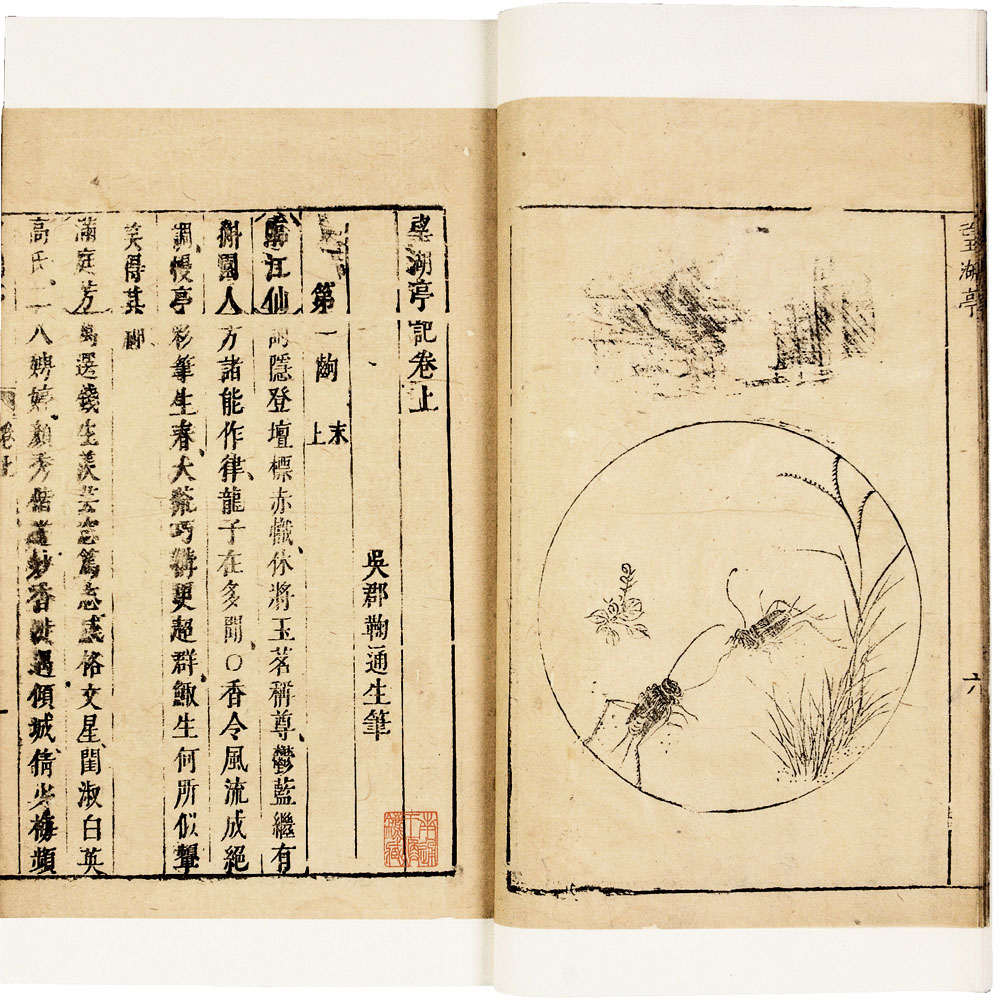 望湖亭
六
望湖亭記卷上
吳郡鞠通生筆
第一齣 末上
臨江仙 詞隱登壇標赤幟休將玉茗稱尊鬱藍繼有
槲園人方諸能作律龍子在多聞○香令風流成絕
調幔亭彩筆生春大荒巧搆更超群鯫生何所似顰
笑得其神
滿庭芳 萬選錢生羨芸窓篤志文星閨淑白英
高氏二八娉婷顏秀妙香遇傾城倩少梅頻
卷上